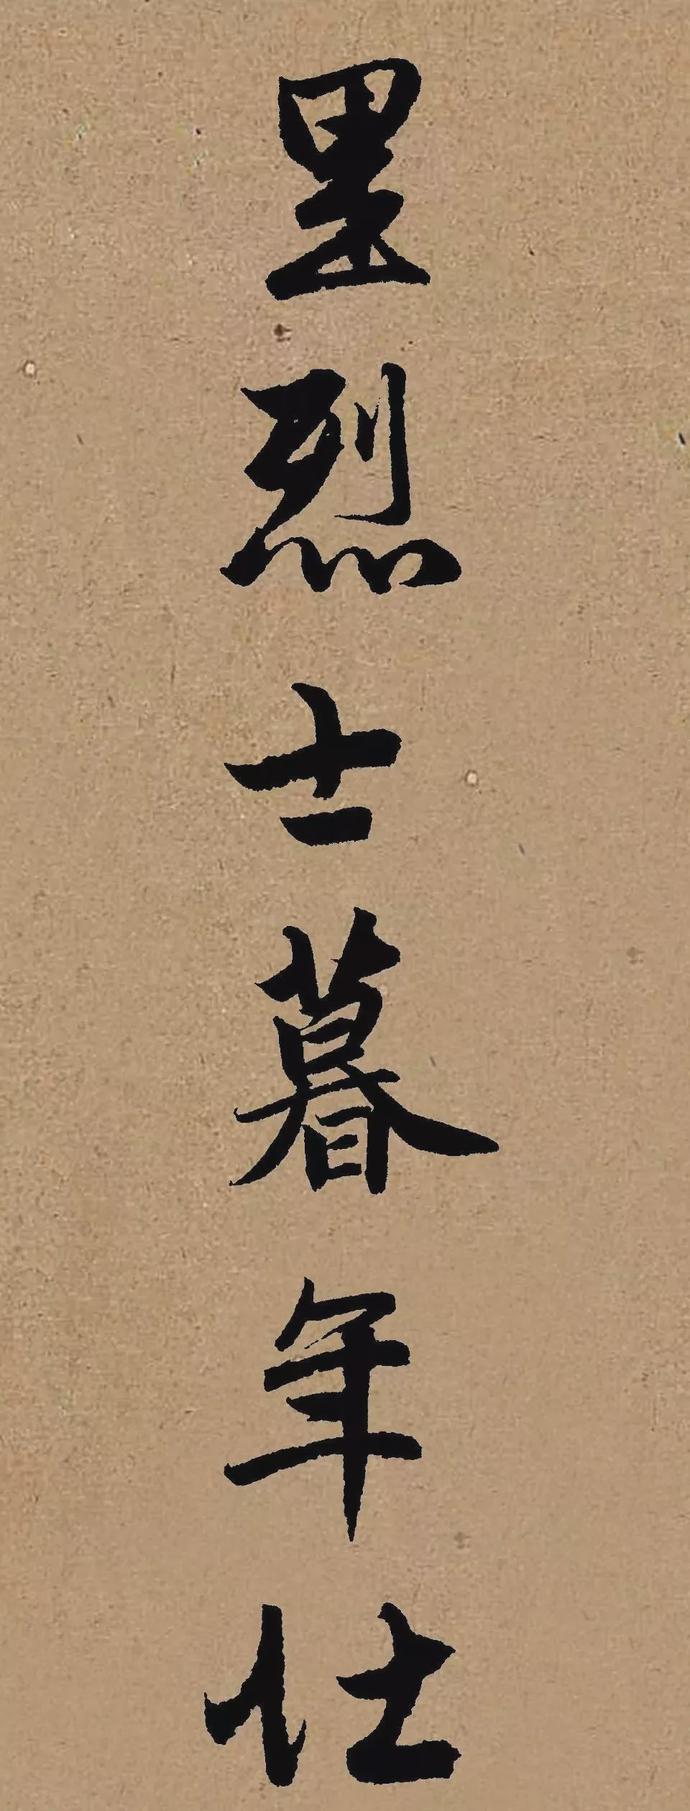 里烈士暮年壮